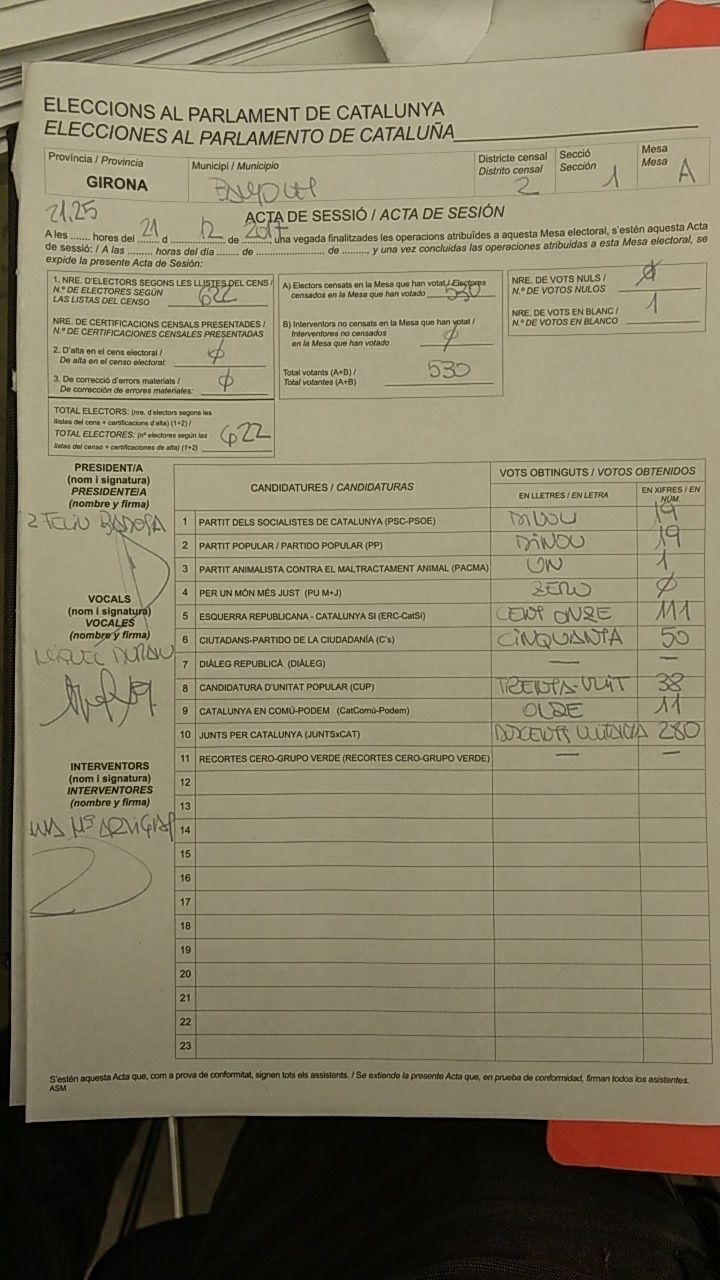 ELECCIONS AL PARLAMENT DE CATALUNYA
ELECCIONES AL PARLAMENTO DE CATALUÑA
Província / Provincia
GIRONA
Municipi / Municipio
Districte censal
Distrito censal
2
Secció
Sección
1
Mesa
Mesa
A
21,25 21 12 2017
ACTA DE SESSIÓ / ACTA DE SESIÓN
A les ....... hores del ....... d ................ de ........, una vegada finalitzades les operacions atribuïdes a aquesta Mesa electoral, s'estén aquesta Acta
de sessió: / A las ......... horas del día ....... de ...................... de ........, y una vez concluidas las operaciones atribuidas a esta Mesa electoral, se
expide la presente Acta de Sesión:
1. NRE. D'ELECTORS SEGONS LES LLISTES DEL CENS /
N.º DE ELECTORES SEGÚN
LAS LISTAS DEL CENSO 622
NRE. DE CERTIFICACIONS CENSALS PRESENTADES /
N.º DE CERTIFICACIONES CENSALES PRESENTADAS
2. D'alta en el cens electoral /
De alta en el censo electoral: Ø
3. De correcció d'errors materials /
De corrección de errores materiales: Ø
TOTAL ELECTORS: (nre. d'electors segons les
llistes del cens + certificacions d'alta) (1+2) /
TOTAL ELECTORES: (nº electores según las
listas del censo + certificaciones de alta) (1+2) 622
A) Electors censats en la Mesa que han votat / Electores
censados en la Mesa que han votado 530
B) Interventors no censats en la Mesa que han votat /
Interventores no censados
en la Mesa que han votado Ø
Total votants (A+B) /
Total votantes (A+B) 530
NRE. DE VOTS NULS /
N.º DE VOTOS NULOS Ø
NRE. DE VOTS EN BLANC /
N.º DE VOTOS EN BLANCO 1
PRESIDENT/A
(nom i signatura)
PRESIDENTE/A
(nombre y firma)
FELIU BADOSA
VOCALS
(nom i signatura)
VOCALES
(nombre y firma)
MIQUEL DURAN
INTERVENTORS
(nom i signatura)
INTERVENTORES
(nombre y firma)
CANDIDATURES / CANDIDATURAS
VOTS OBTINGUTS / VOTOS OBTENIDOS
EN LLETRES / EN LETRA
EN XIFRES / EN NÚM.
1 PARTIT DELS SOCIALISTES DE CATALUNYA (PSC-PSOE) DINOU 19
2 PARTIT POPULAR / PARTIDO POPULAR (PP) DINOU 19
3 PARTIT ANIMALISTA CONTRA EL MALTRACTAMENT ANIMAL (PACMA) UN 1
4 PER UN MÓN MÉS JUST (PU M+J) ZERO Ø
5 ESQUERRA REPUBLICANA - CATALUNYA SI (ERC-CatSI) CENT ONZE 111
6 CIUTADANS-PARTIDO DE LA CIUDADANÍA (C's) CINQUANTA 50
7 DIÀLEG REPUBLICÀ (DIÀLEG) — —
8 CANDIDATURA D'UNITAT POPULAR (CUP) TRENTA-VUIT 38
9 CATALUNYA EN COMÚ-PODEM (CatComú-Podem) ONZE 11
10 JUNTS PER CATALUNYA (JUNTSxCAT) DOCENTS VUITANTA 280
11 RECORTES CERO-GRUPO VERDE (RECORTES CERO-GRUPO VERDE) — —
12
13
14
15
16
17
18
19
20
21
22
23
S'estén aquesta Acta que, com a prova de conformitat, signen tots els assistents. / Se extiende la presente Acta que, en prueba de conformidad, firman todos los asistentes.
ASM